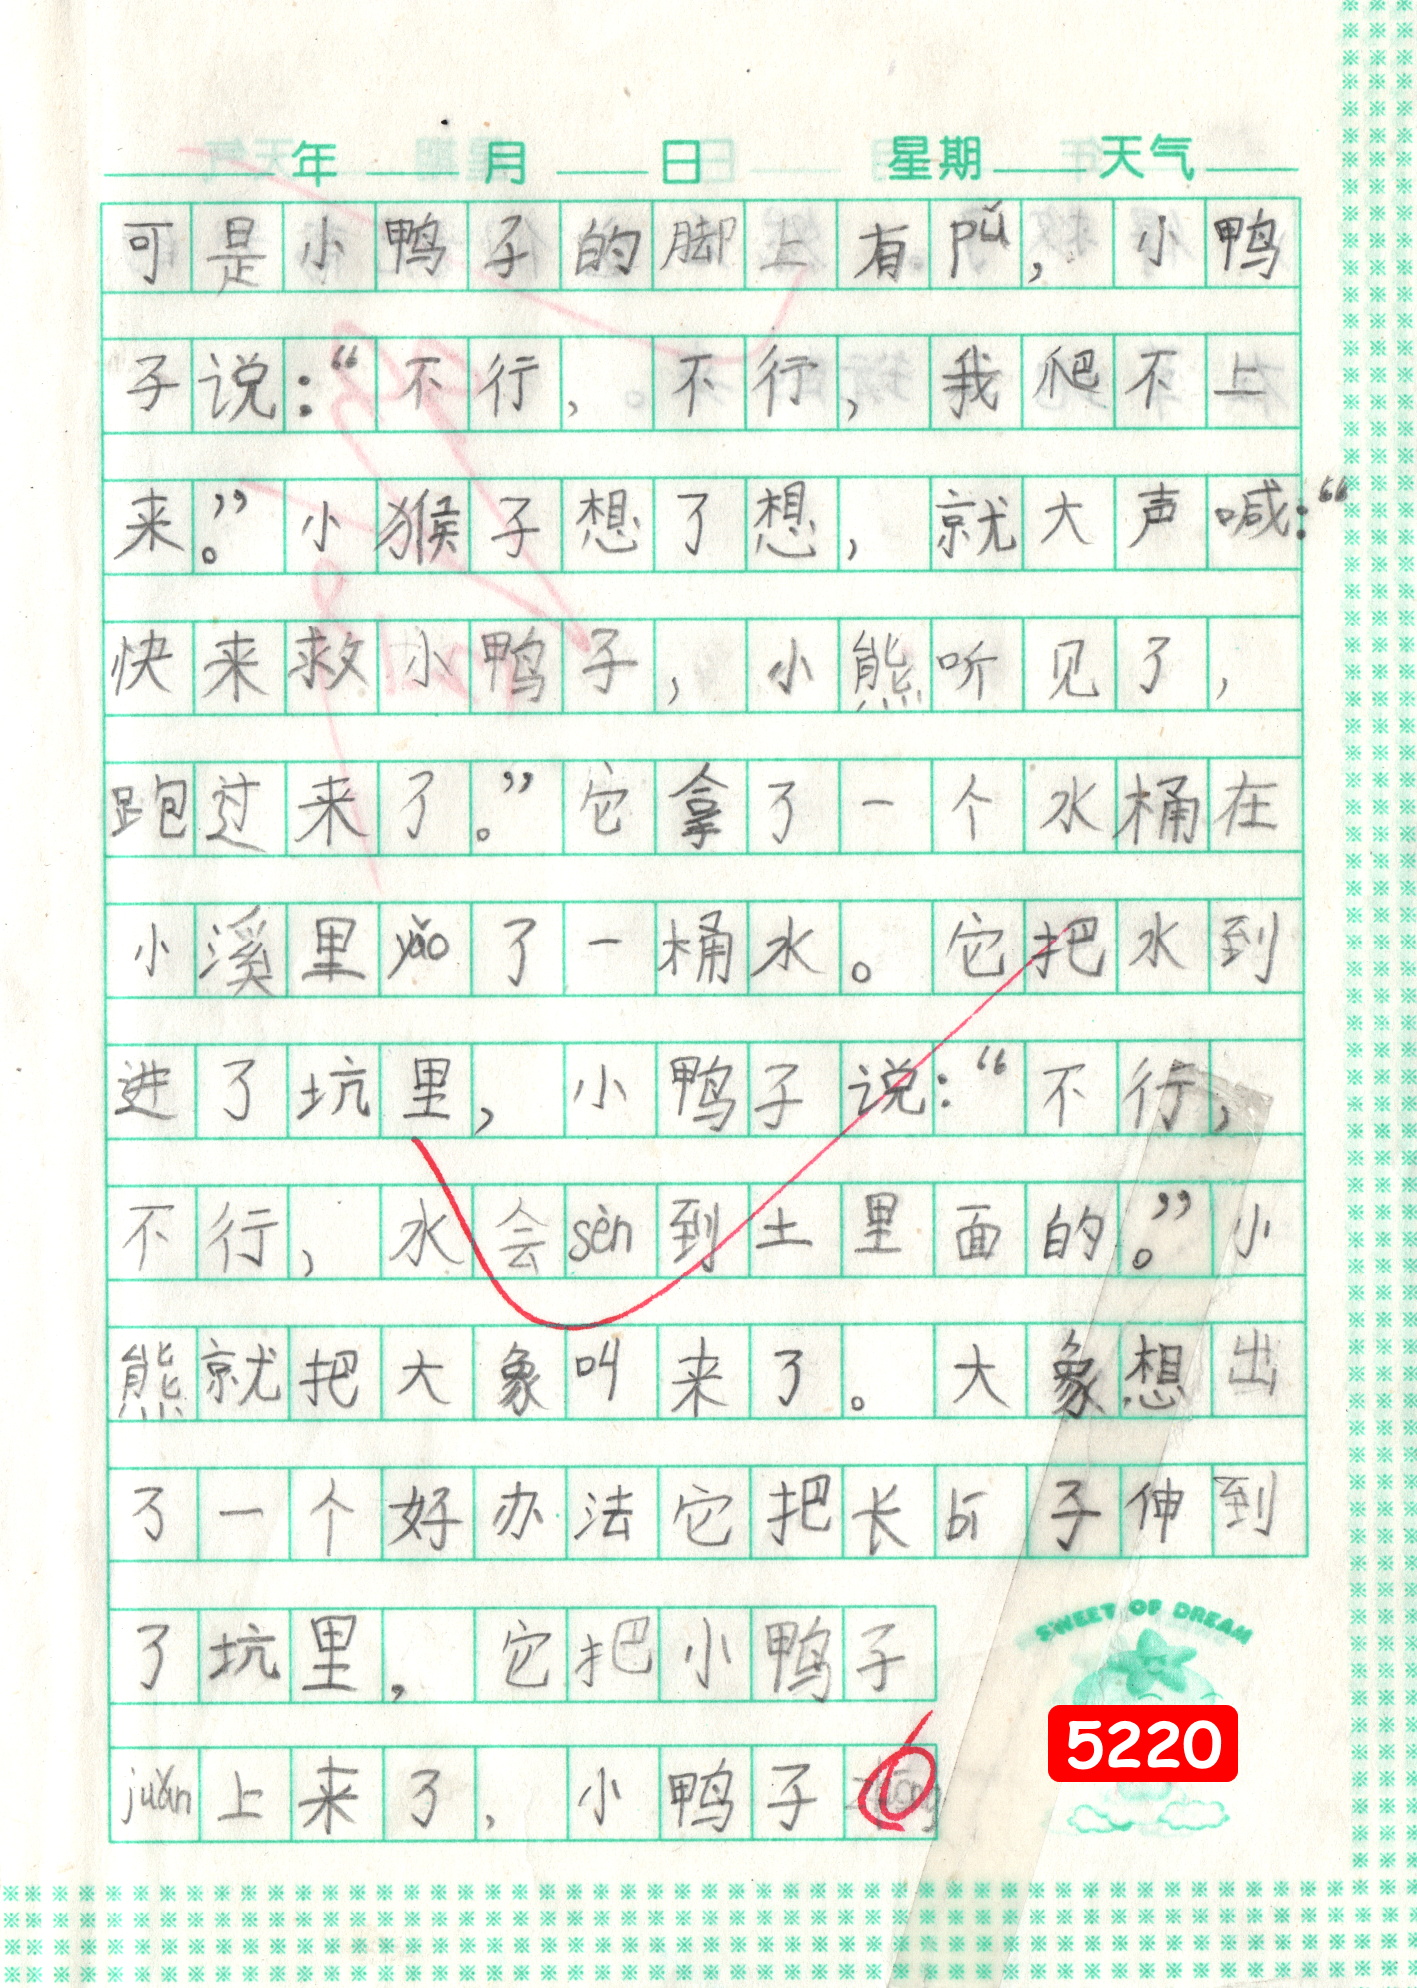 年 月 日 星期 天气
可是小鸭子的脚上有pǔ，小鸭
子说：“不行，不行，我爬不上
来。”小猴子想了想，就大声喊：“
快来救小鸭子，小熊听见了，
跑过来了。”它拿了一个水桶在
小溪里yǎo了一桶水。它把水到
进了坑里，小鸭子说：“不行，
不行，水会sèn到土里面的。”小
熊就把大象叫来了。大象想出
了一个好办法它把长bí子伸到
了坑里，它把小鸭子
juǎn上来了，小鸭子
6
SWEET OF DREAM
5220